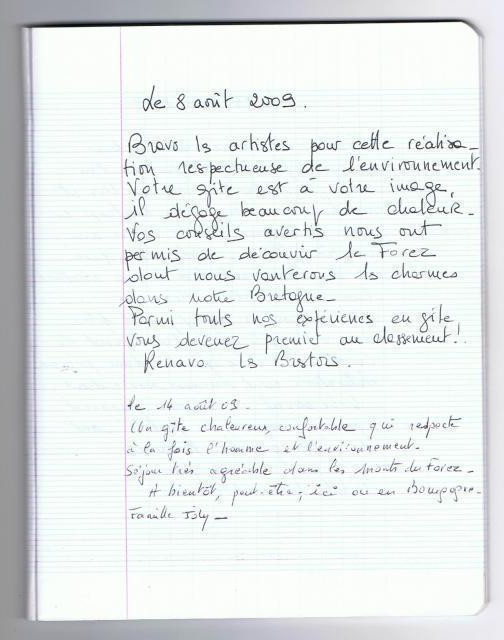 Le 8 août 2009.
Bravo ls artistes pour cette réalisa_
tion respectueuse de l'environnement.
Votre gîte est à votre image,
il dégage beaucoup de chaleur.
Vos conseils avertis nous ont
permis de découvrir le Forez
dont nous vanterons ls charmes
dans notre Bretagne_
Parmi touts nos expériences en gîte
vous devenez premier au classement!
ls
le 14 août 09.
Un gîte chaleureux, confortable qui respecte
à la fois l'homme et l'environnement.
Séjour très agréable dans les monts du Forez_
A bientôt, peut-être, ici ou en Bourgogne.
Famille Joly_